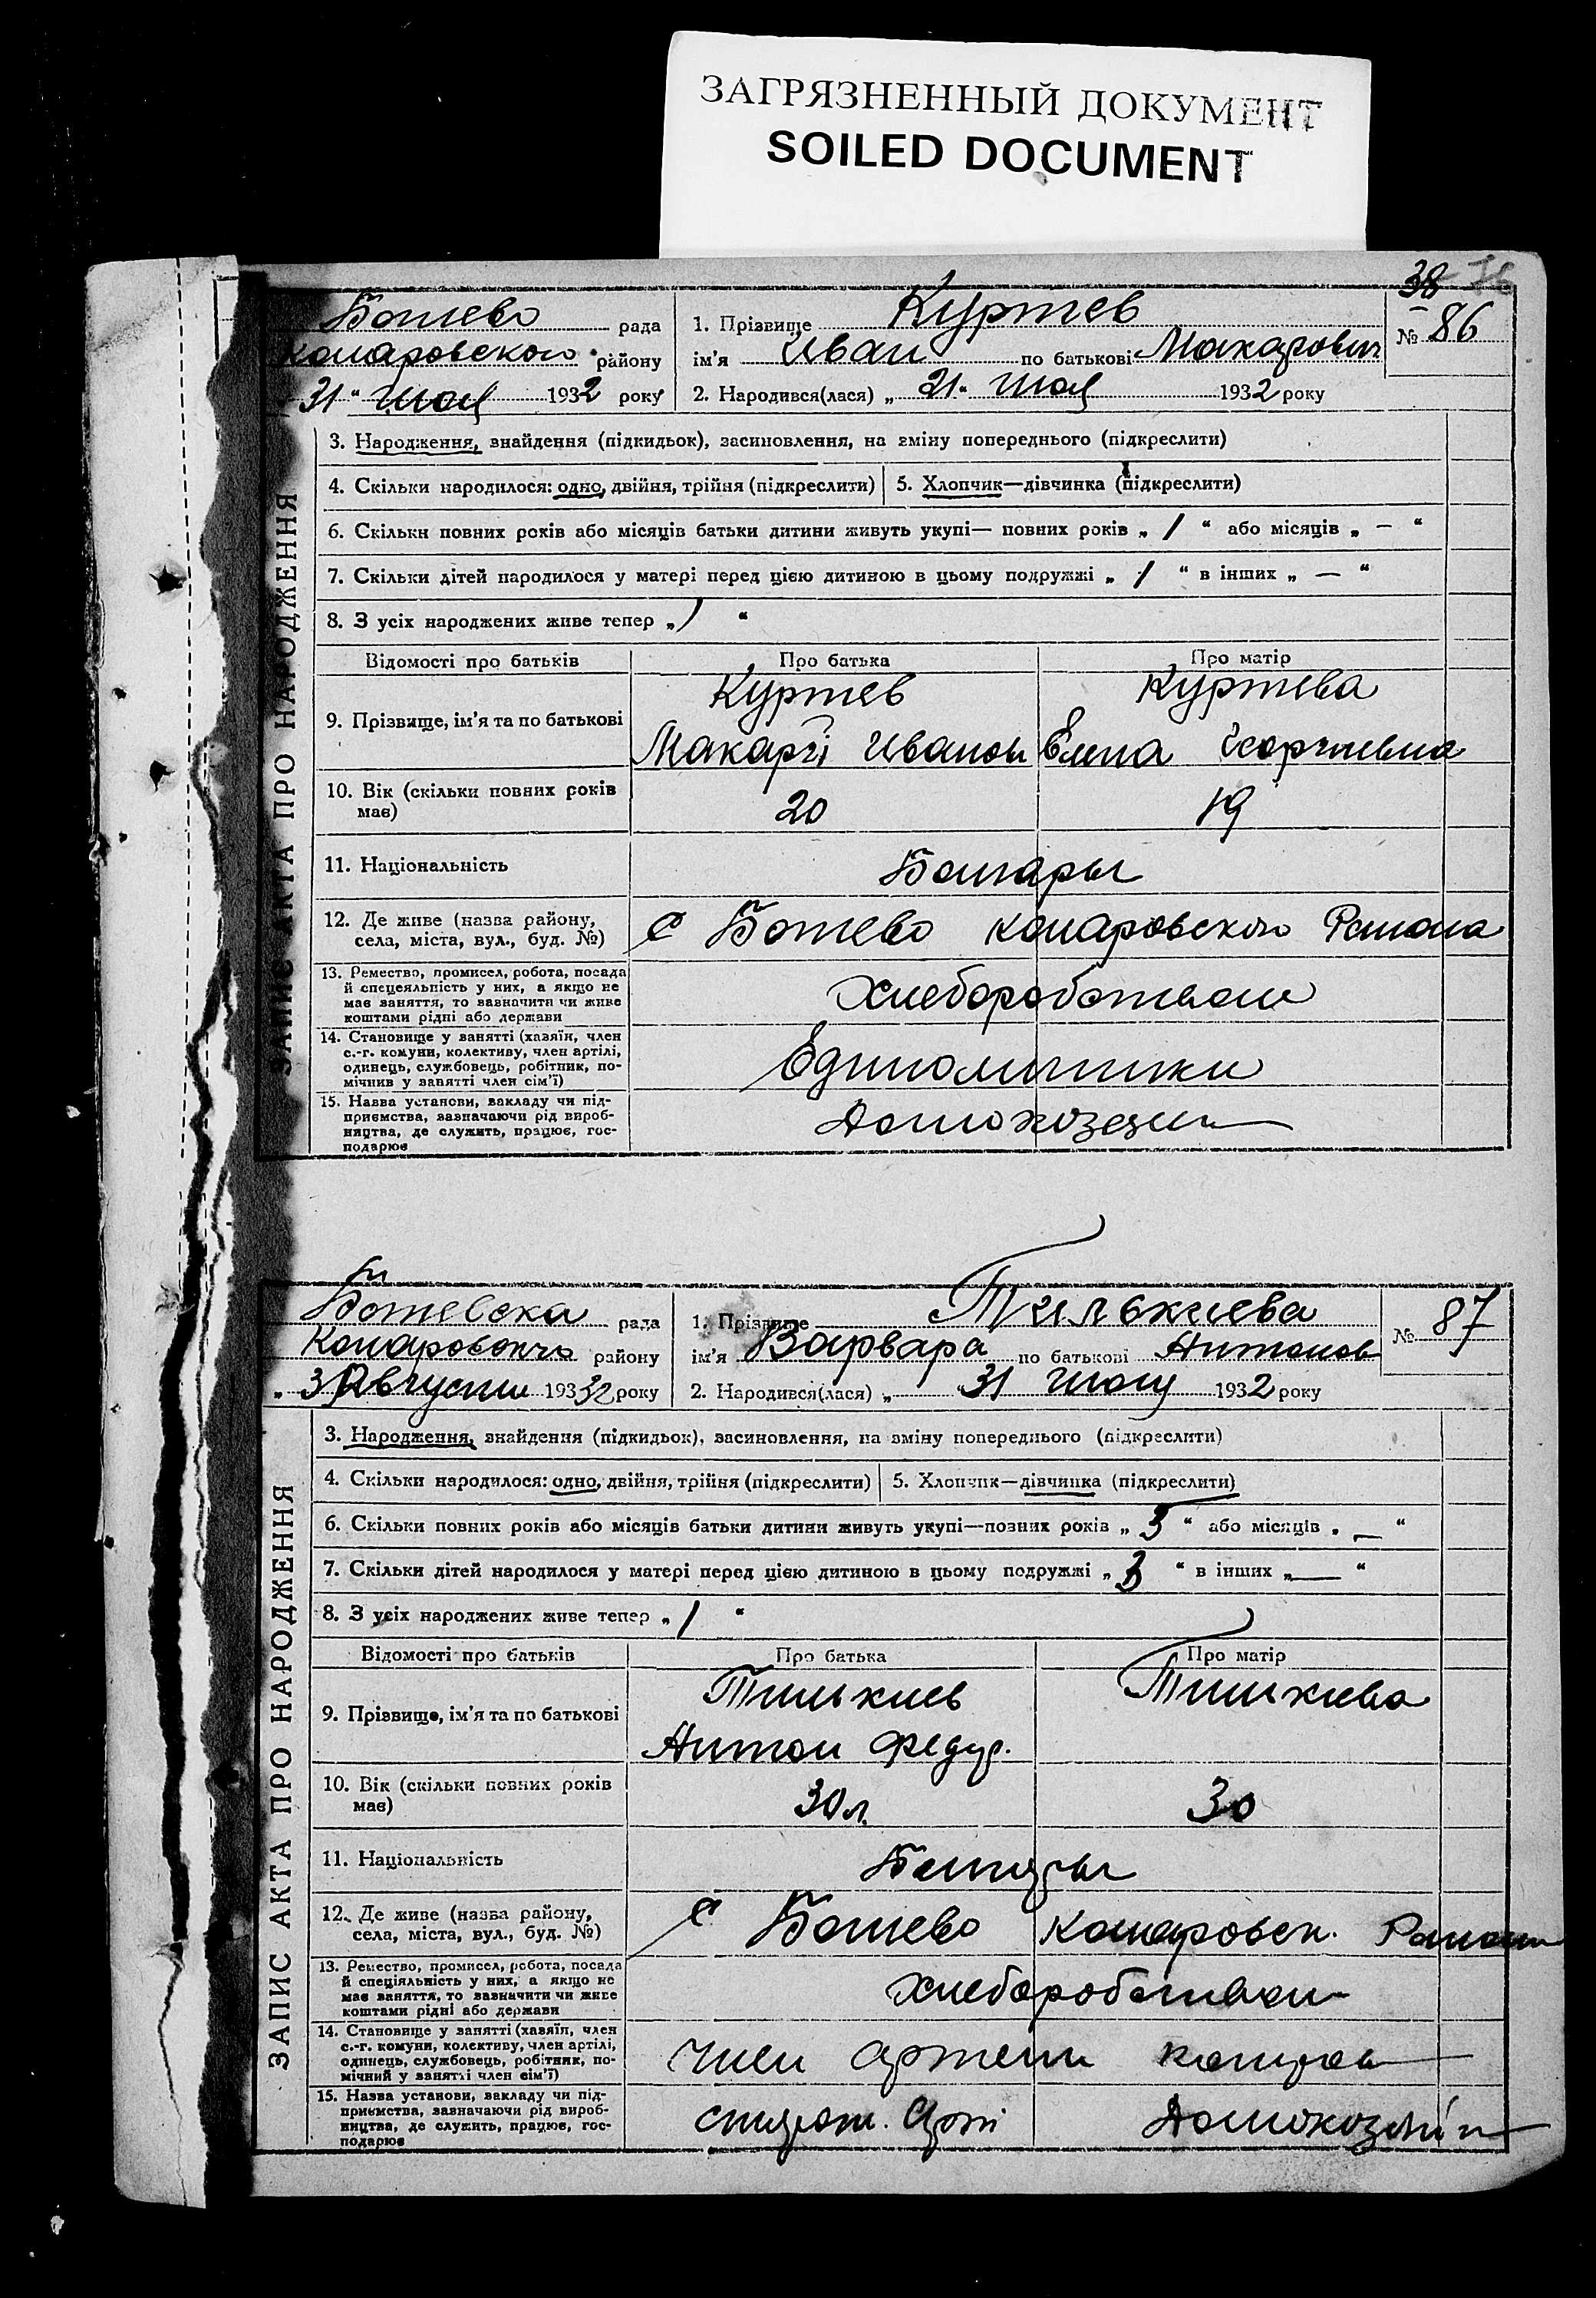 ЗАГРЯЗНЕННЫЙ ДОКУМЕНТ
SOILED DOCUMENT
38 76
Ботево рада
Коларовского району
31 " Июля 1932 року
1. Прізвище Куртев
ім'я Иван по батькові Макарович
2. Народився(лася) „ 21 " Июля 1932 року
№ 86
ЗАПИС АКТА ПРО НАРОДЖЕННЯ
3. Народження, знайдення (підкидьок), засиновлення, на зміну попереднього (підкреслити)
4. Скільки народилося: одно, двійня, трійня (підкреслити) 5. Хлопчик—дівчинка (підкреслити)
6. Скільки повних років або місяців батьки дитини живуть укупі— повних років „ 1 " або місяців „ — "
7. Скільки дітей народилося у матері перед цією дитиною в цьому подружжі „ 1 " в інших „ — "
8. З усіх народжених живе тепер „ 1 "
Відомості про батьків Про батька Про матір
9. Прізвище, ім'я та по батькові
Куртев Куртева
Макарій Иванов Елена Георгиевна
10. Вік (скільки повних років
має)
20 19
11. Національність Болгары
12. Де живе (назва району,
села, міста, вул., буд. №)
с Ботево Коларовского Района
13. Ремество, промисел, робота, посада
й спецеяльність у них, а якщо не
має заняття, то зазначити чи живе
коштами рідні або держави
Хлеборобством
14. Становище у занятті (хазяїн, член
с.-г. комуни, колективу, член артілі,
одинець, службовець, робітник, по-
мічнив у занятті член сім'ї)
Единоличники
15. Назва установи, закладу чи під-
приємства, зазначаючи рід вироб-
ництва, де служить, працює, гос-
подарює
Ботевска рада
району
3 Августа 1932 року
1. Прізвище Тилькиева
ім'я Варвара по батькові Антонов
2. Народився(лася) „ 31 Июля 1932 року
№ 87
ЗАПИС АКТА ПРО НАРОДЖЕННЯ
3. Народження, знайдення (підкидьок), засиновлення, на зміну попереднього (підкреслити)
4. Скільки народилося: одно, двійня, трійня (підкреслити) 5. Хлопчик—дівчинка (підкреслити)
6. Скільки повних років або місяців батьки дитини живуть укупі—повних років „ 5 " або місяців „ — "
7. Скільки дітей народилося у матері перед цією дитиною в цьому подружжі „ 3 " в інших „ — "
8. З усіх народжених живе тепер „ 1 "
Відомості про батьків Про батька Про матір
9. Прізвище, ім'я та по батькові
Тилькиев Тилькиева
Антон Федор.
10. Вік (скільки повних років
має)
30 л. 30
11. Національність Болгары
12. Де живе (назва району,
села, міста, вул., буд. №)
с Ботево Коларовск. Района
13. Ремество, промисел, робота, посада
й спеціяльність у них, а якщо не
має заняття, то зазначити чи живе
коштами рідні або держави
14. Становище у занятті (хазяїн, член
с.-г. комуни, колективу, член артілі,
одинець, службовець, робітник, по-
мічний у занятті член сім'ї)
Член Артели
15. Назва установи, закладу чи під-
приємства, зазначаючи рід вироб-
ництва, де служить, працює, гос-
подарює